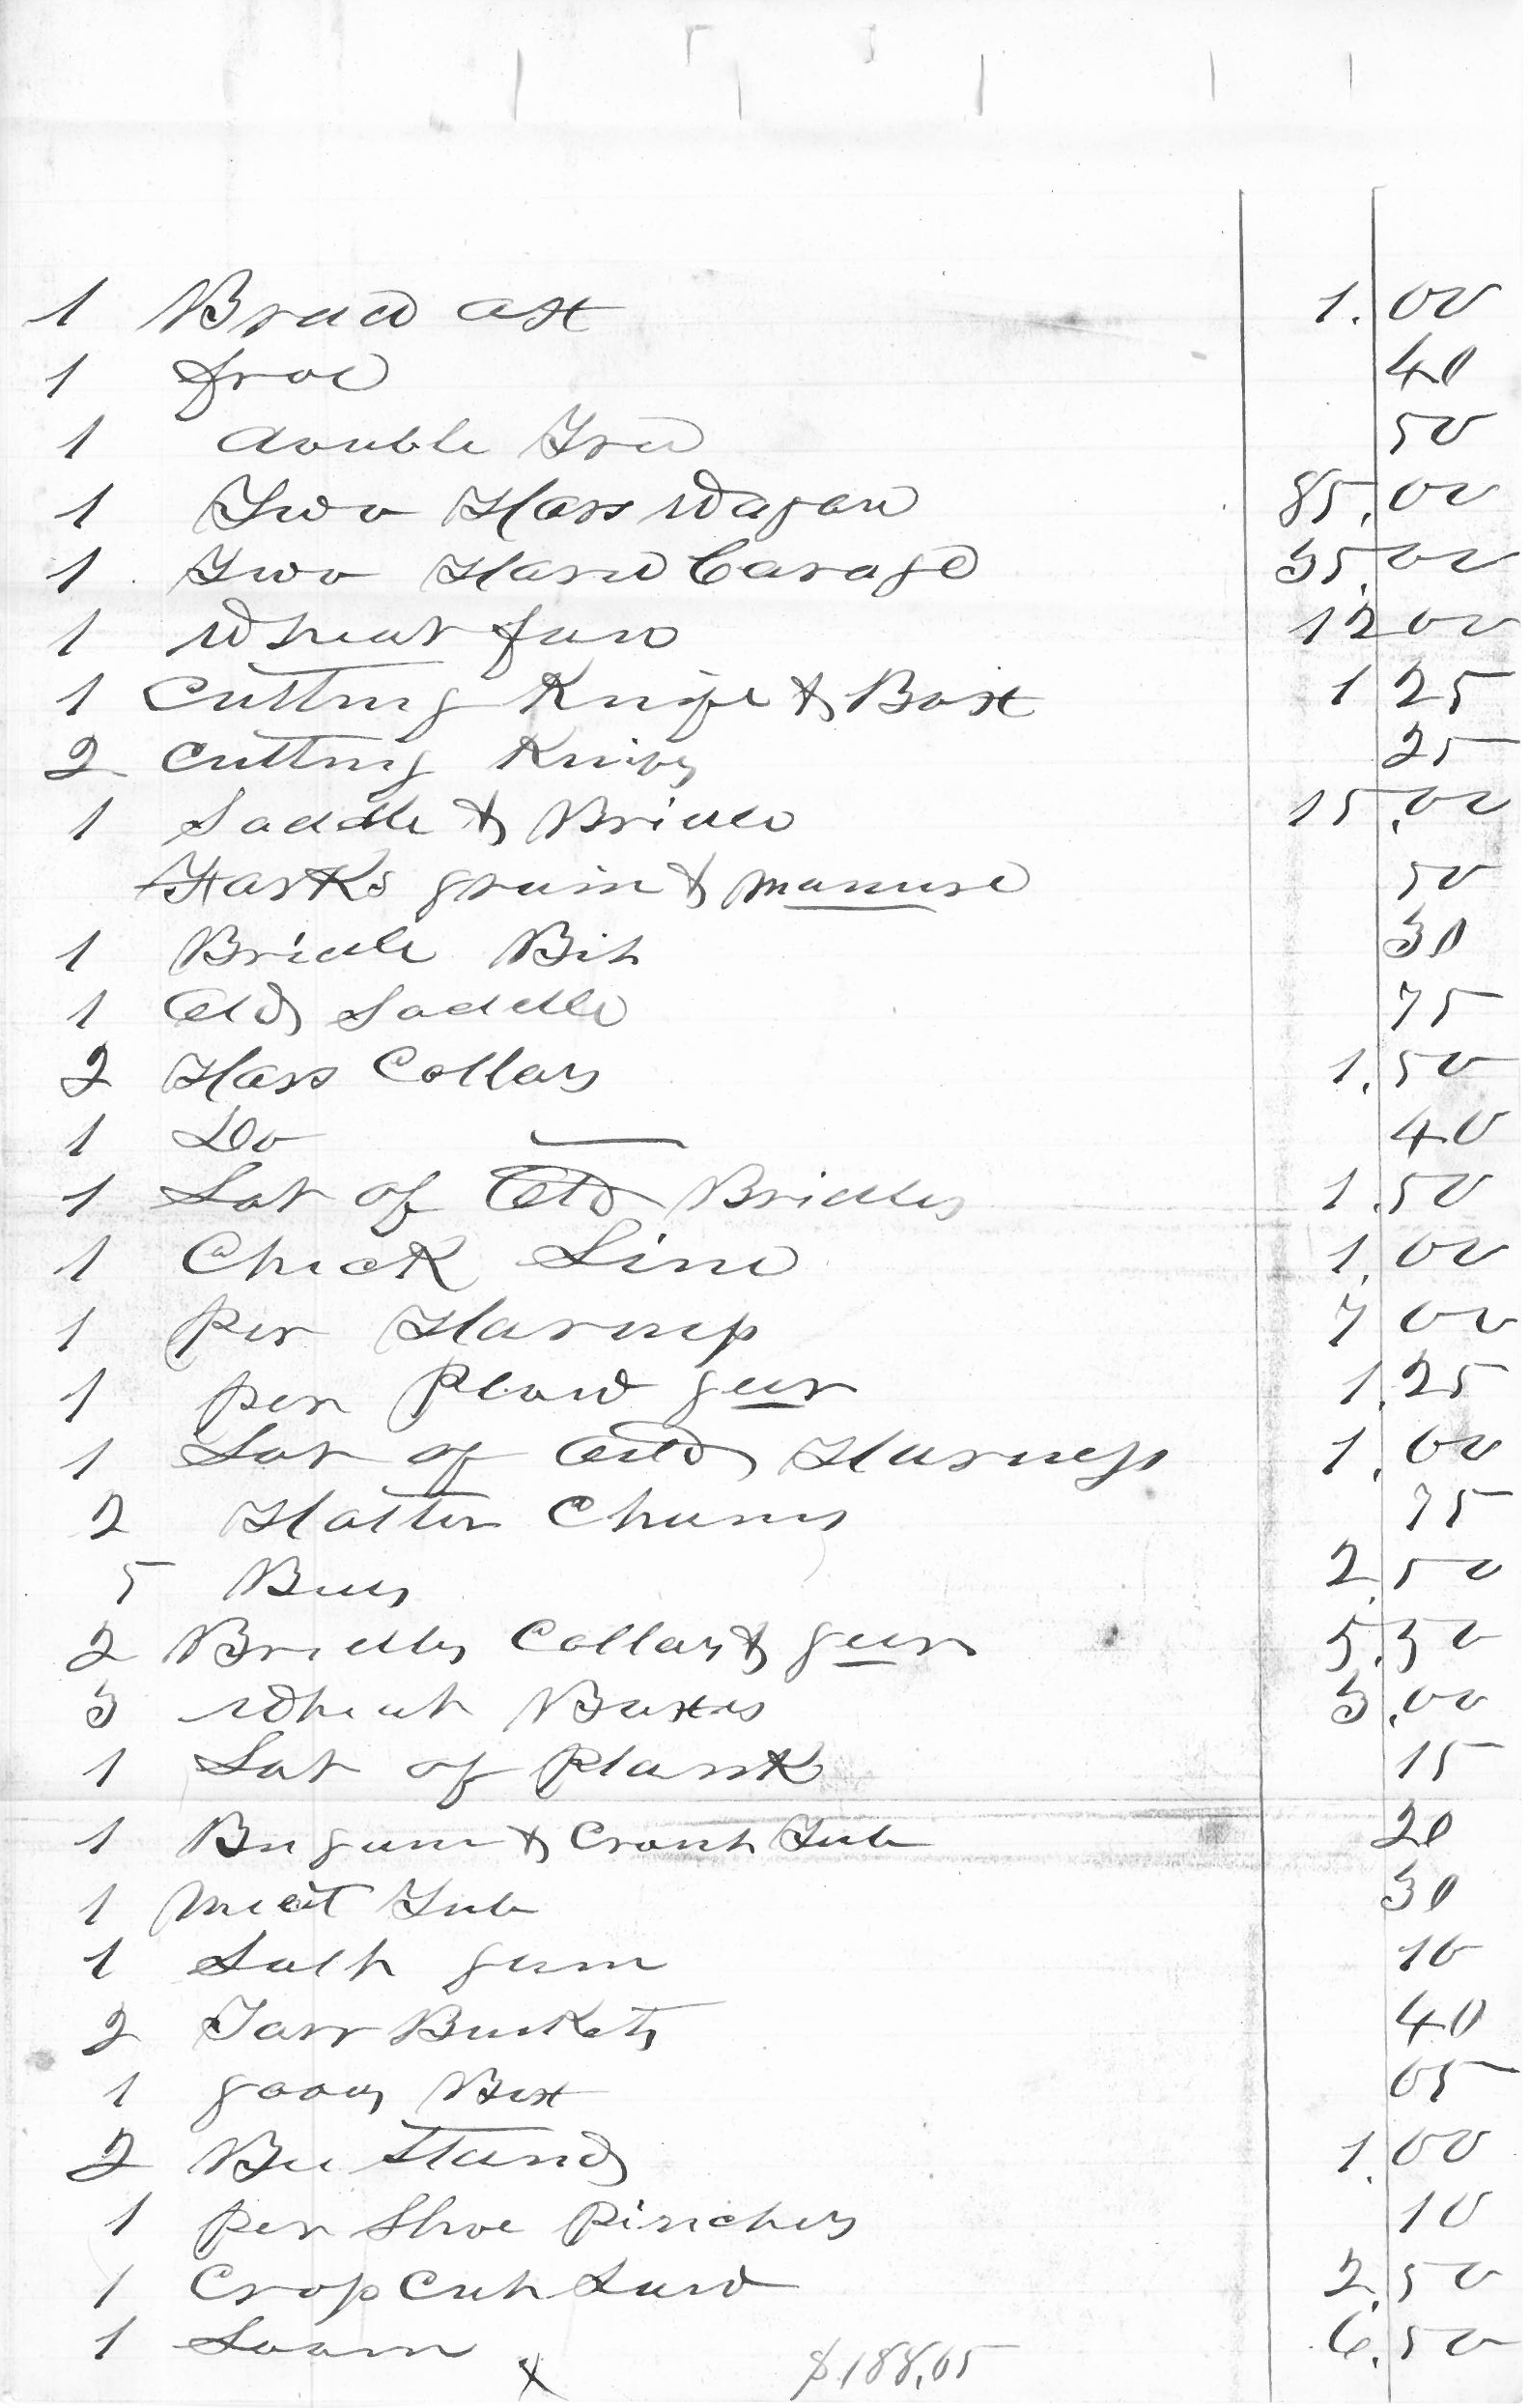 1 Broad ax 1.00
1 froe 40
1 double Tree 50
1 Two Hass Wagon 85.00
1 Two Hass Carage 35.00
1 Wheat fan 12 00
1 Cutting Knife & Box 1 25
2 Cutting Knives 25
1 Saddle & Bridle 15.00
Forks grain & manure 50
1 Bridle Bit 30
1 Old Saddle 75
2 Hass Collars 1.50
1 Do — 40
1 Lot of Old Bridles 1.50
1 Check Line 1.00
1 per Harness 7 00
1 per Plow gear 1.25
1 Lot of Old Harness 1.00
2 Halter Chains 75
5 Bees 2.50
2 Bridles Collars & gear 5.50
3 Wheat Boxes 3.00
1 Lot of Plank 15
1 Be gum & Crout Tub 20
1 Meat Tub 30
1 Salt gum 10
2 Tarr Buckets 40
1 goods Box 05
2 Bee Stands 1.00
1 per Shoe Pinchers 10
1 Crop Cut Saw 2.50
1 Loom 6.50
x $188.05